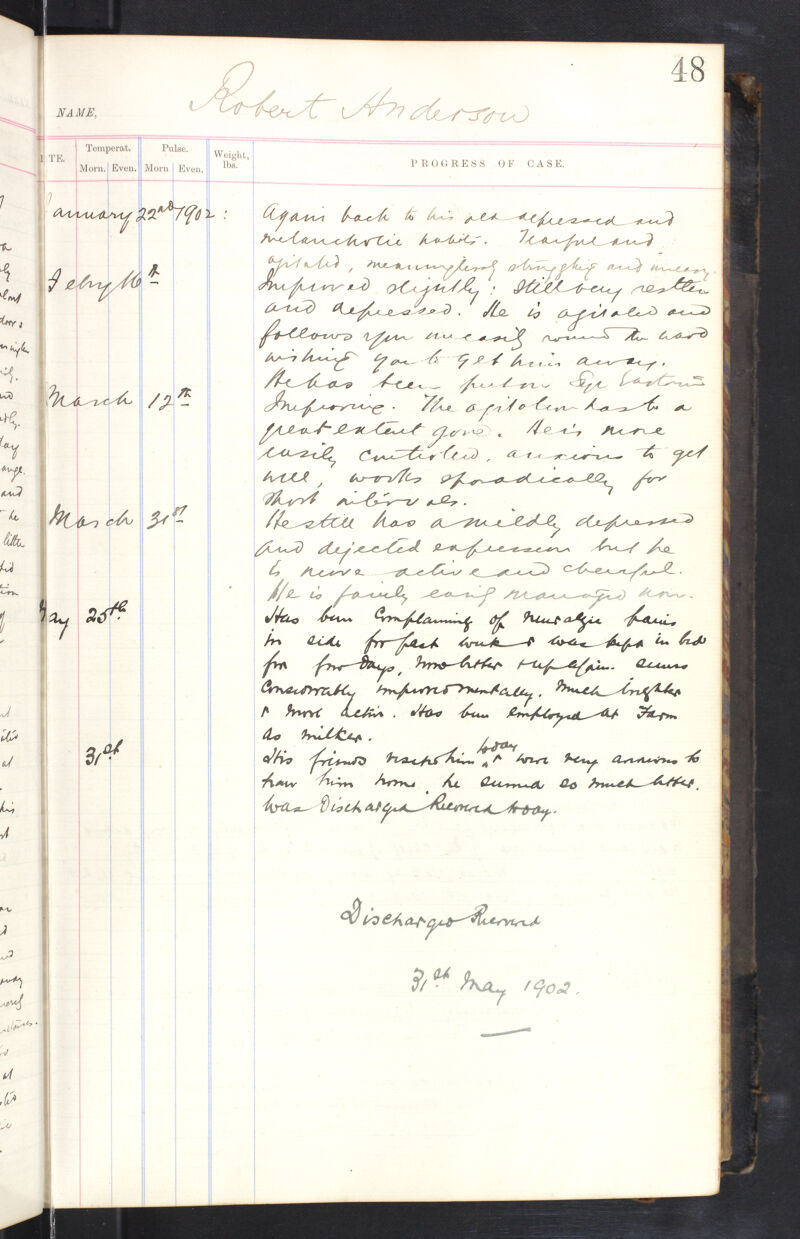 48
NAME, Robert Anderson
TE. Temperat. Pulse. Weight, lbs. PROGRESS OF CASE.
Morn. Even. Morn Even.
January 22nd 1902: Again back to his old depressed and
melancholic habits. Tearful and
agitated, meaninglessly struggling and uneasy.
Febry 16th Improved slightly: Still very restless
and depressed. He is agitated and
follows you uneasily round the ward
wishing you to get him away.
He has been put on Syr
March 12th Improving. The agitation has to a
great extent gone. He is more
easily controlled, anxious to get
well, works sporadically for
short intervals.
March 31st He still has a mildly depressed
and dejected expression but he
is more active and cheerful.
He is fairly easily managed now.
May 25th Has been Complaining of Neuralgic pains
in side for past week & was kept in bed
for few days, now better & up again. Seems
Considerably improved mentally. Much brighter
& more active. Has been employed at Farm
as milker.
31st His friends visited him today & were very anxious to
have him home, he seemed so much better.
Was Discharged Recovered today.
Discharged Recovered
31st May 1902.